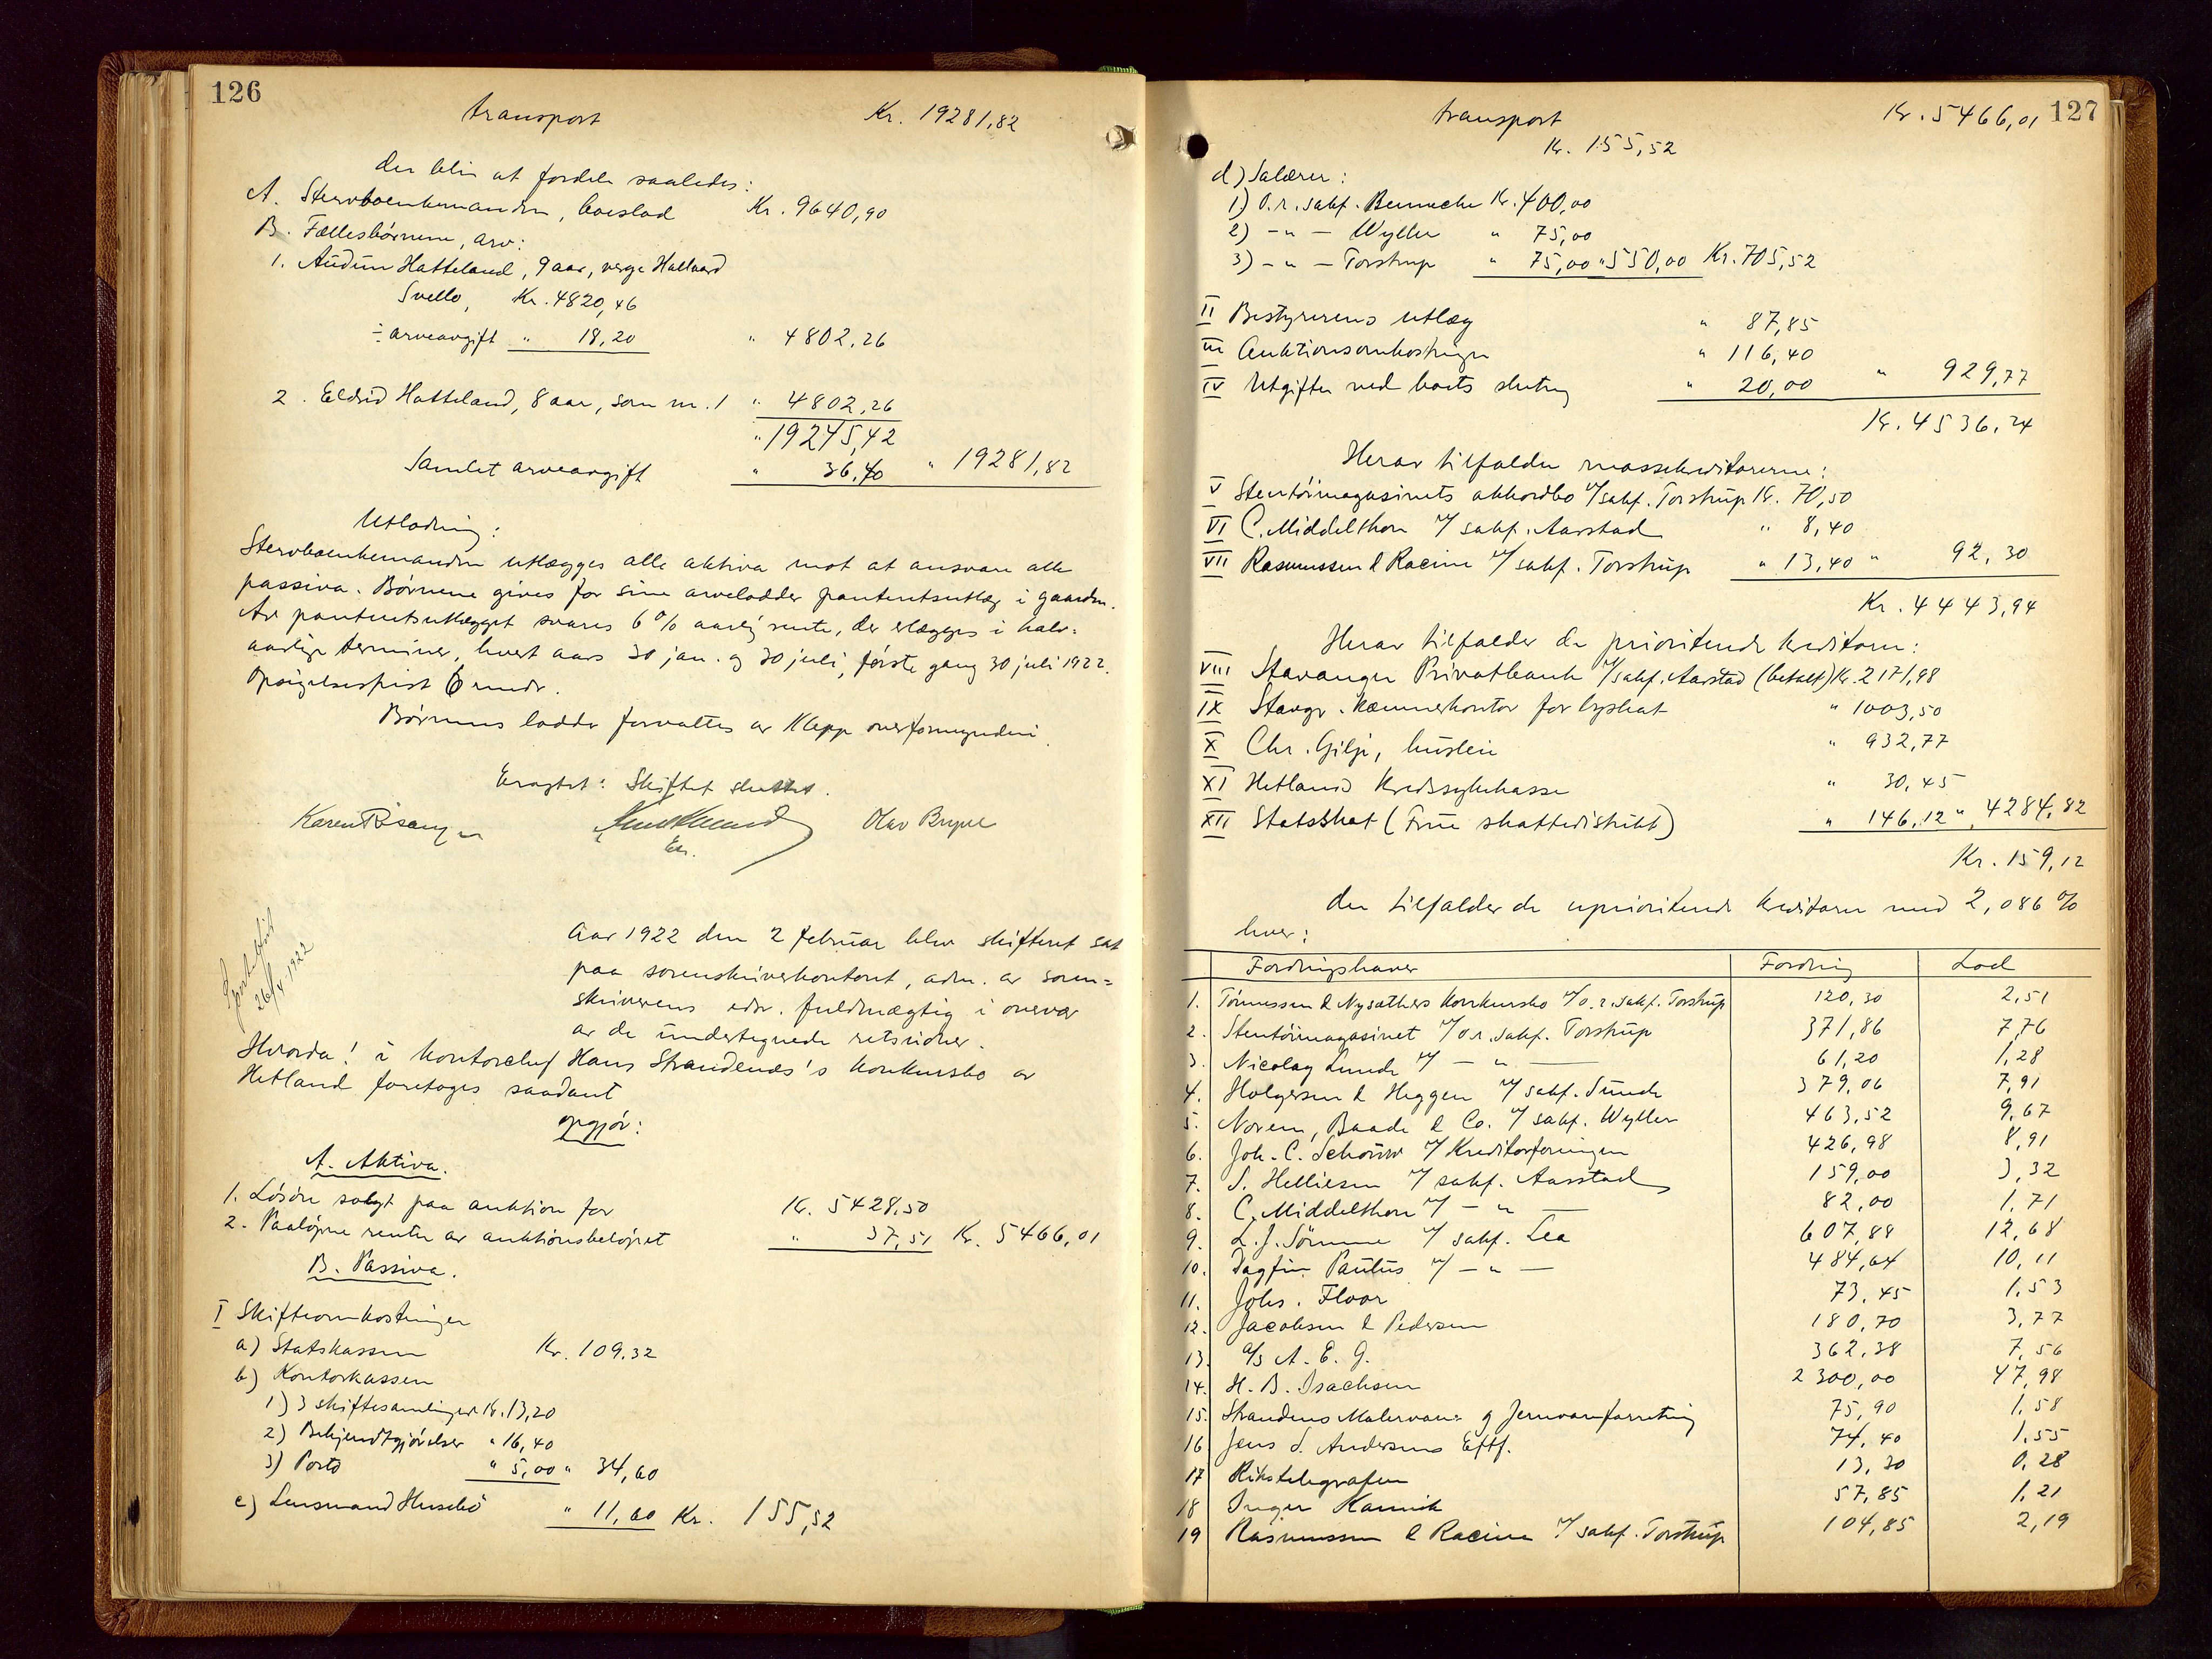 126
transport Kr. 19281,82
der blir at fordele saaledes:
A. Stervboenkemanden, boeslod Kr. 9640,90
B. Fællesbørnene, arv:
1. Audun Hatteland, 9 aar, verge Hallvard
Svello, Kr. 4820,46
÷ arveavgift " 18,20 " 4802,26
2. Eldrid Hatteland, 8 aar, som nr. 1 " 4802,26
" 19245,42
Samlet arveavgift " 36,40 " 19281,82
Utlodning:
Stervboenkemanden utlægges alle aktiva mot at ansvare alle
passiva. Børnene gives for sine arvelodder panteretsutlæg i gaarden.
Av panteretsutlægget svares 6 % aarlig rente, der erlægges i halv-
aarlige terminer, hvert aars 30 jan. og 30 juli, første gang 30 juli 1922.
Opsigelsesfrist 6 mndr.
Børnenes lodder forvaltes av Klepp overformynderi.
Eragtet: Skiftet sluttet.
Olav Bryne
26/4 1922
Aar 1922 den 2 februar blev skifteret sat
paa sorenskriverkontoret, adm. av soren-
skriverens edsv. fuldmægtig i overvær
av de undertegnede retsvidner.
Hvorda! i kontorchef Hans Strandenæs's konkursbo av
Hetland foretoges saadant
opgjør:
A. Aktiva.
1. Løsøre solgt paa auktion for Kr. 5428,50
2. Paaløpne renter av auktionsbeløpet " 37,51 Kr. 5466,01
B. Passiva.
I Skifteomkostninger
a) Statskassen Kr. 109,32
b) Kontorkassen
1) 3 skiftesamlinger Kr. 13,20
2) Bekjendtgjørelser " 16,40
3) Porto " 5,00 " 34,60
c) Lensmand Husebø " 11,60 Kr. 155,52
127
transport Kr. 5466,01
Kr. 155,52
d) Salærer:
1) O.r.sakf. Benneche Kr. 400,00
2) - " - Wyller " 75,00
3) - " - Torstrup " 75,00 " 550,00 Kr. 705,52
II Bestyrerens utlæg " 87,85
III Auktionsomkostninger " 116,40
IV Utgifter ved boets slutning " 20,00 " 929,77
Kr. 4536,24
Herav tilfalder massekreditorerne:
V Stentøimagasinets akkordbo v/sakf. Torstrup Kr. 70,50
VI C. Middelthon v/ sakf. Aarstad " 8,40
VII Rasmussen & Racine v/ sakf. Torstrup " 13,40 " 92,30
Kr. 4443,94
Herav tilfalder de prioriterede kreditorer:
VIII Stavanger Privatbank v/sakf. Aarstad (betalt) Kr. 2171,98
IX Stavgr. kæmnerkontor for byskat " 1003,50
X Chr. Gilje, husleie " 932,77
XI Hetland kredssykekasse " 30,45
XII Statsskat (Frue skattedistrikt) " 146,12 " 4284,82
Kr. 159,12
der tilfalder de uprioriterede kreditorer med 2,086 %
hver:
Fordringshaver Fordring Lod
1. Tönnessen & Nysæthers konkursbo v/o.r.sakf. Torstrup 120,30 2,51
2. Stentøimagasinet v/o.r.sakf. Torstrup 371,86 7,76
3. Nicolay Lunde v/ - " - 61,20 1,28
4. Holgersen & Heggen v/ sakf. Sunde 379,06 7,91
5. Norem, Baade & Co. v/ sakf. Wyller 463,52 9,67
6. Joh. C. Schouw v/ Kreditorforeningen 426,98 8,91
7. S. Helliesen v/ sakf. Aarstad 159,00 3,32
8. C. Middelthon v/ - " - 82,00 1,71
9. L. J. Sömme v/ sakf. Lea 607,88 12,68
10. Dagfin Paulus v/ - " - 484,64 10,11
11. Johs. Floor 73,45 1,53
12. Jacobsen & Pedersen 180,70 3,77
13. A/S A. E. G. 362,38 7,56
14. H. B. Isachsen 2300,00 47,98
15. Strandens Malervare- og Jernvareforretning 75,90 1,58
16 Jens S. Andersens Eftf. 74,40 1,55
17 Rikstelegrafen 13,30 0,28
18 Inger Kannik 57,85 1,21
19 Rasmussen & Racine v/ sakf. Torstrup 104,85 2,19